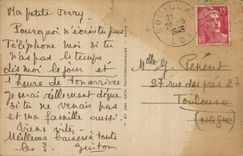 Ma petite Jerry
Pourquoi n'écris tu pas.
Téléphone moi si tu
n'as pas le temps
dis moi le jour et
l'heure de ton arrivée
Je serai réellement déçue si
tu ne venais pas
et ma famille aussi.
Viens vite.
Meilleurs baisers à toutes
les 3.
21
1948
LOT
Mlle G.
27 rue des
Toulouse